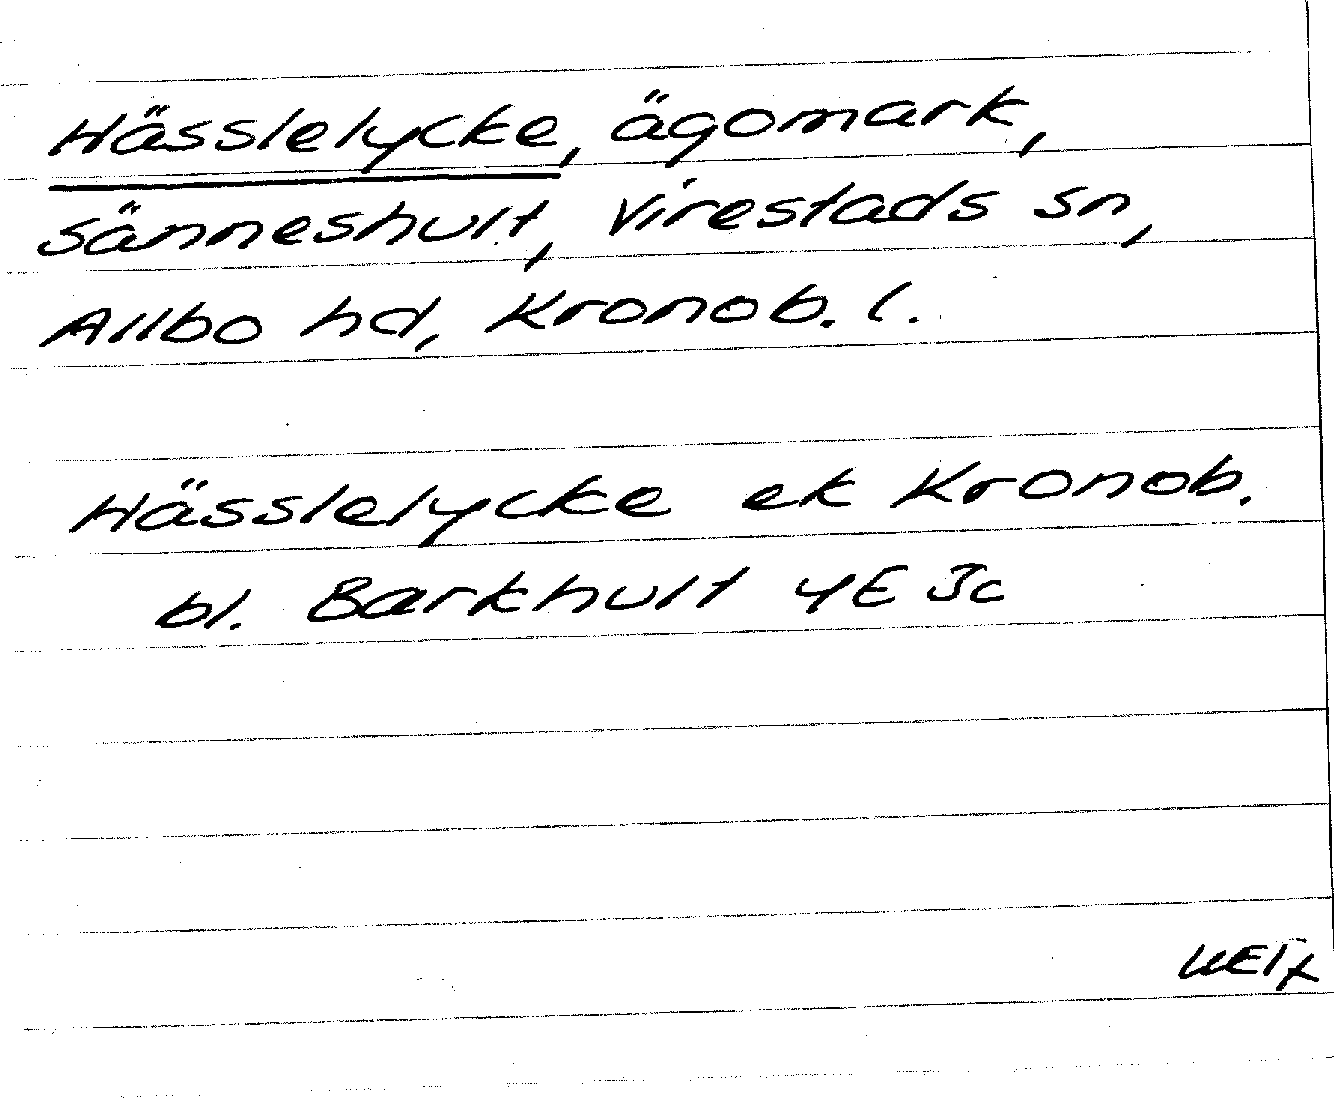 Hässlelycke, ägomark,
Sänneshult, Virestads sn,
Allbo hd, Kronob. l.
Hässlelycke ek Kronob.
bl. Barkhult 4E Jc